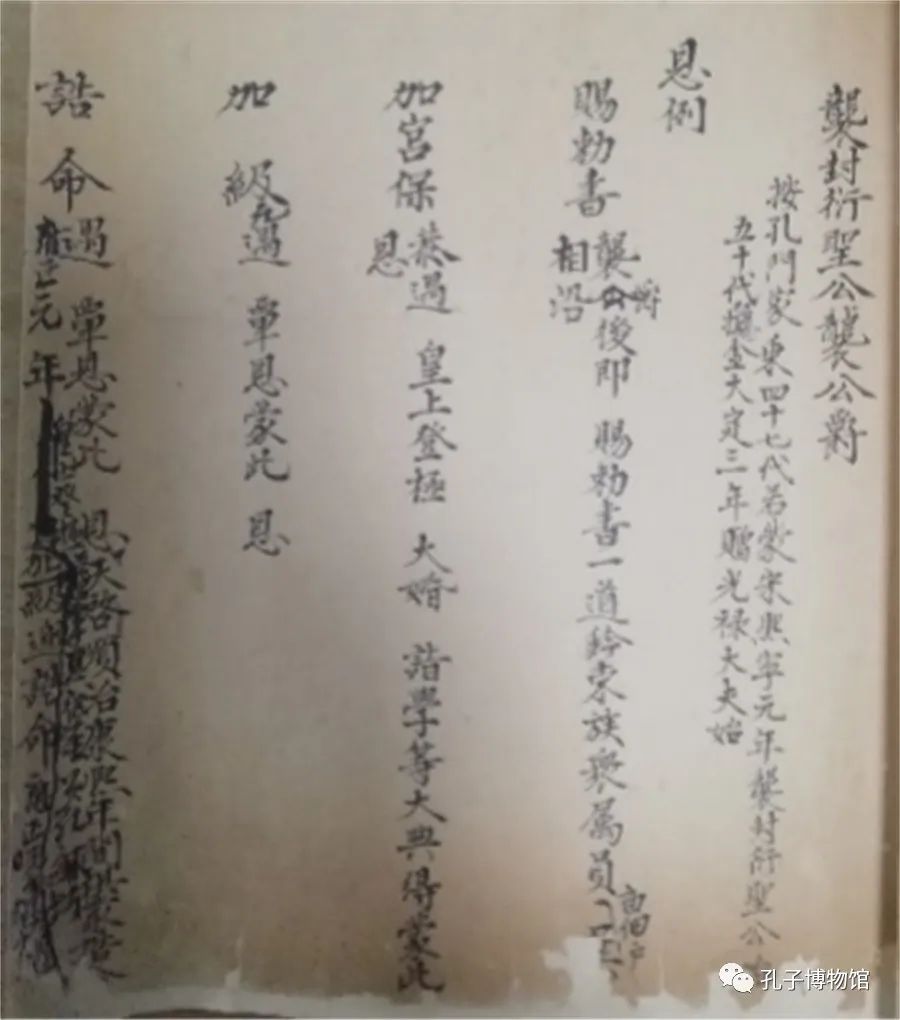 襲封衍聖公襲公爵
按孔門家乘四十七代若蒙宋熙寧元年襲封衍聖公
五十代摠金大定三年贈光禄大夫始
恩例
賜勅書
襲爵後即 賜勅書一道鈐束族衆属員
相沿
加宮保
恭遇 皇上登極 大婚 詣學等大典得蒙此
恩
加級
遇 覃恩蒙此 恩
誥命
遇 覃恩蒙此 恩天啓順治康熙年間
雍正元年
誥命
孔子博物馆